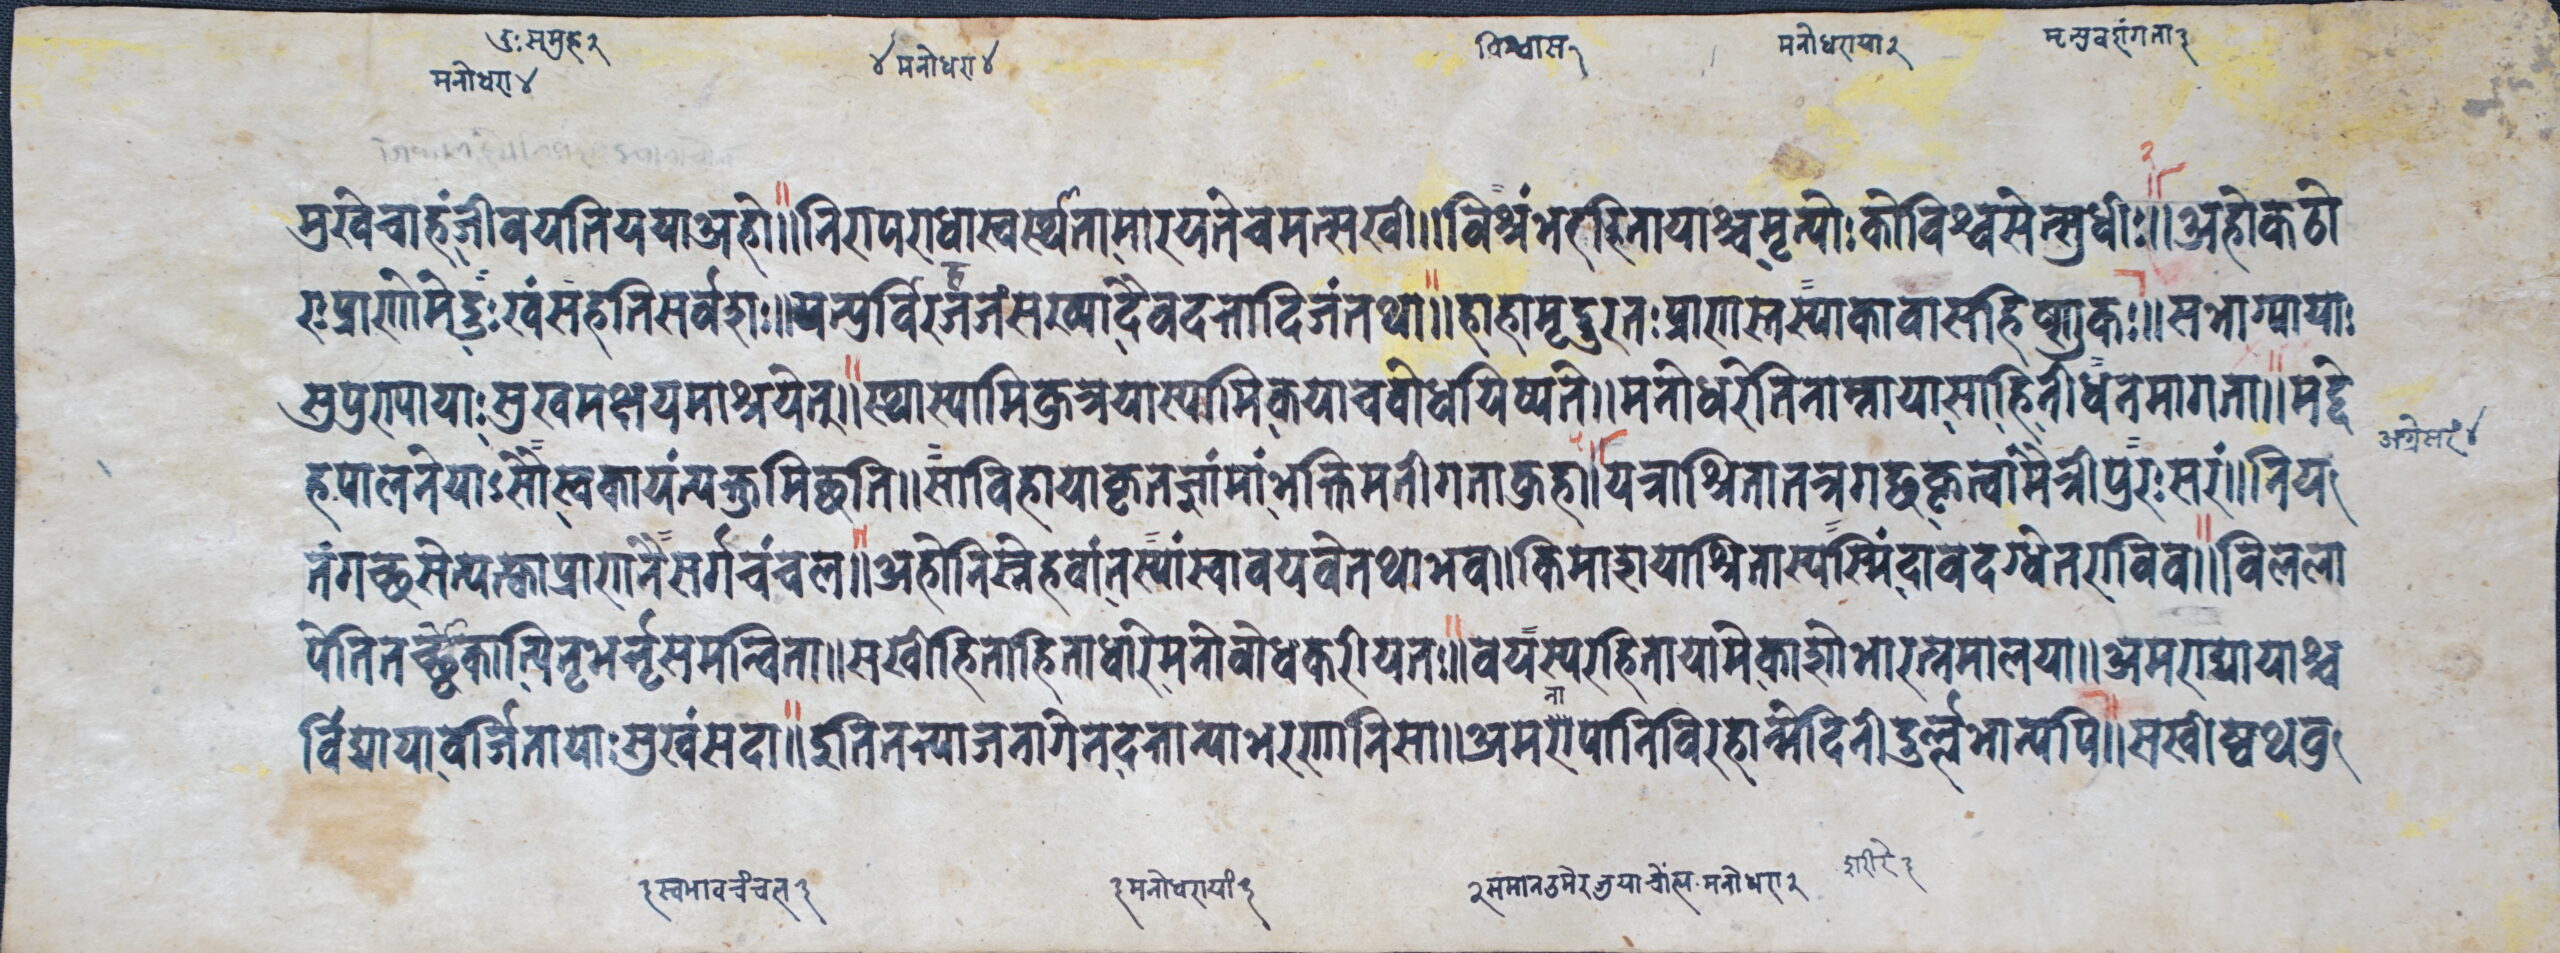 दुःसमुह२
मनोधरा४
४मनोधरा४
विश्वास१
मनोधराया२
मृत्युवशंगता३
मुखेचाहंजीवयतिययाअहो॥निरापराधास्वर्स्थतामारयतेचमत्सखी॥विश्रंभरहितायाश्चमृत्योःकोविश्वसेत्सुधीः॥अहोकठो
रःप्राणोमेदुःखंसहतिसर्वशः॥यत्पुर्विरहजंसख्यांदैवदत्तादिजंतथा॥हाहामृदुरतःप्राणस्तस्याकावासहिष्णुकः॥सभाग्यायाः
सुपुरुपायाःसुखमक्षयमाश्रयेत्॥स्थास्यामिकुत्रयास्यामिकयाचबोधयिष्यते॥मनोधरेतिनाम्नायासाहिनीधनमागता॥मद्दे
हपालनेयाःसौस्वकायंत्यक्तुमिच्छति॥साविहायाकृतज्ञांमांभक्तिमतीगताकुहा॥यत्राश्रितातत्रगच्छकृत्वामैत्रीपुरःसरं॥निय
अग्रेसरं४
तंगच्छसेत्यत्काप्राणनैसर्गचंचल॥अहोनिस्नेहवांतस्यांस्वावयवेतथाभव॥किमाशयाश्रितास्यस्मिंदावदग्धेतराविव॥विलला
पेतितच्छोकात्पितृभर्तृसमन्विता॥सखीहिताहिताधारिमनोबोधकरीयतः॥वयस्यरहितायामेकाशोभारत्नमालया॥अमराद्यायाश्च
र्विद्यायावर्जितायाःसुखंसदा॥इतितत्याजनागेतदत्तात्याभरणानिसा॥अमरापानिविरहान्मेदिनीदुर्ल्लभान्यपि॥सखीष्वथवु
३स्वभावचंचल३
३मनोधरायां३
२समानउमेरभयाचोंत्य.मनोधरा२
शरीरे३